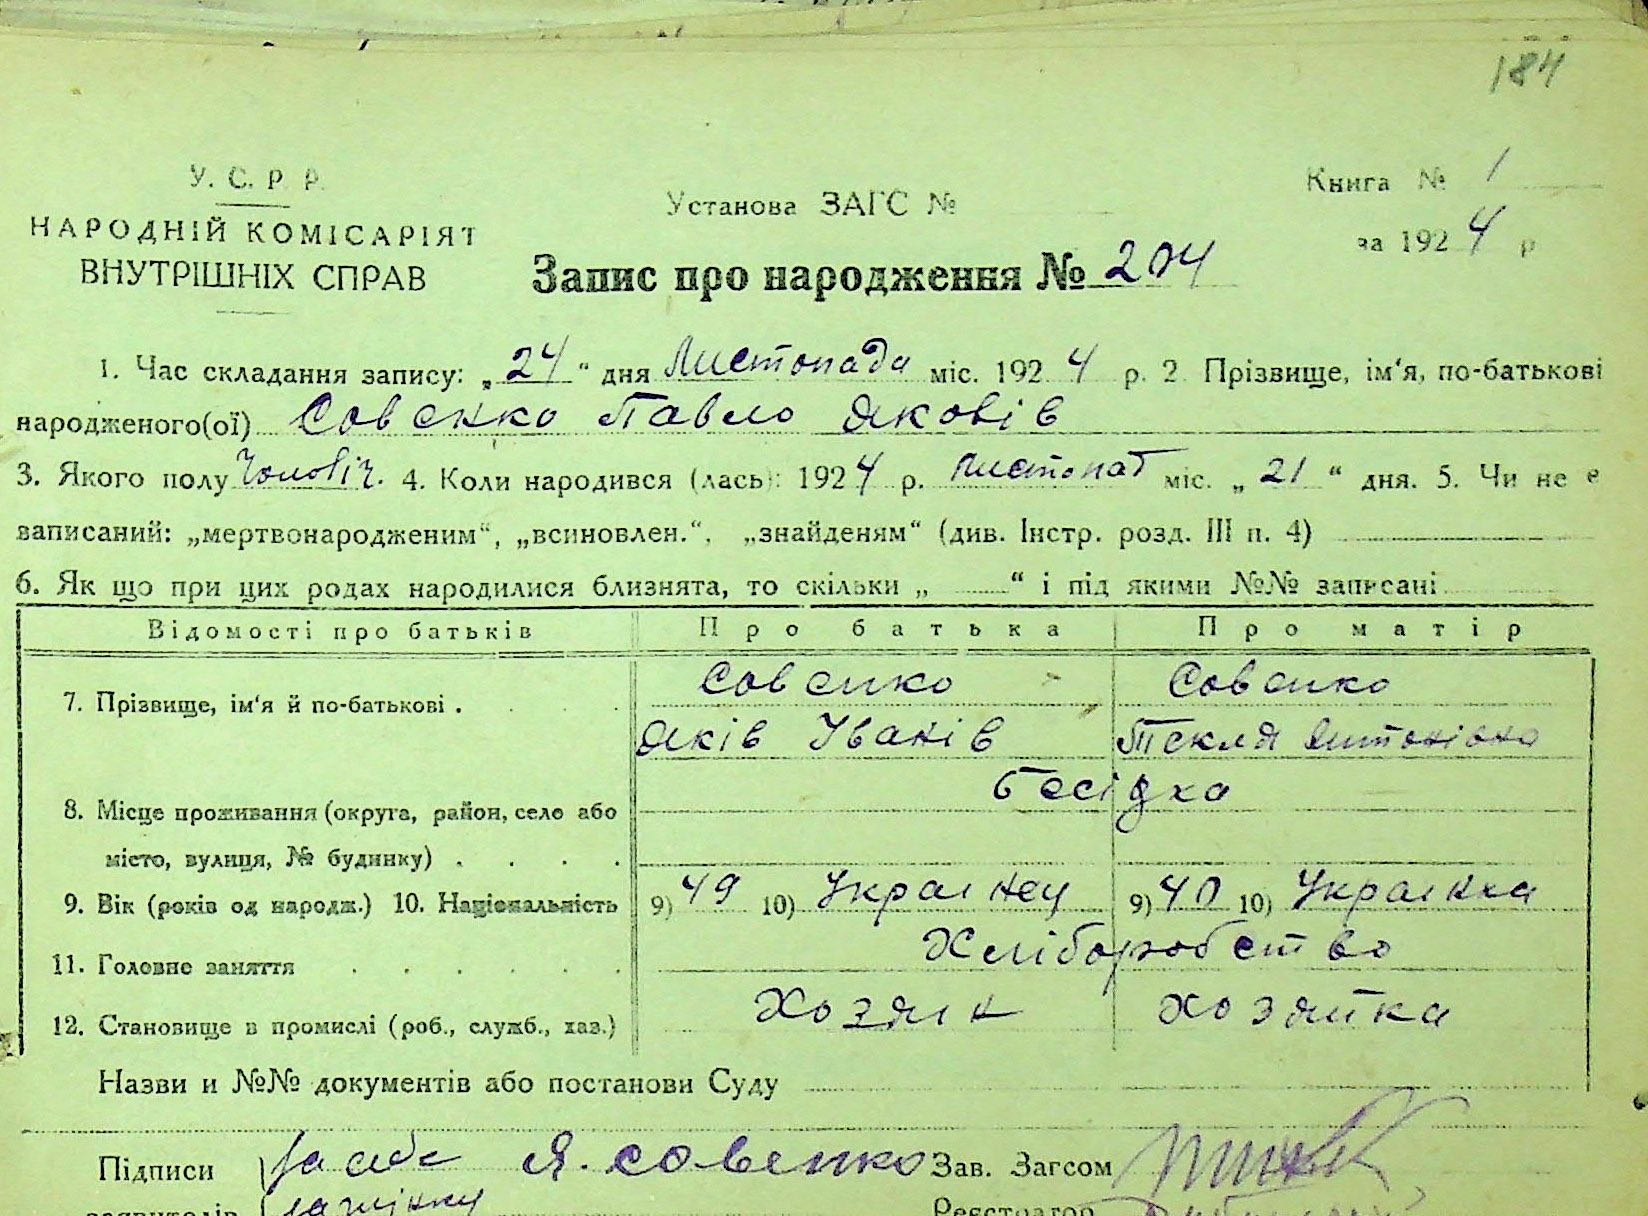 184
У. С. Р. Р.
НАРОДНІЙ КОМІСАРІЯТ
ВНУТРІШНІХ СПРАВ
Установа ЗАГС №
Книга № 1
за 1924 р
Запис про народження № 204
1. Час складання запису: „24“ дня Листопада міс. 1924 р. 2. Прізвище, ім'я, по-батькові
народженого(ої) Совенко Павло Яковів
3. Якого полу чоловіч. 4. Коли народився (лась): 1924 р. листопат міс. „21“ дня. 5. Чи не є
записаний: „мертвонародженим“, „всиновлен.“, „знайденям“ (див. Інстр. розд. III п. 4)
6. Як що при цих родах народилися близнята, то скільки „ “ і під якими №№ записані
Відомості про батьків Про батька Про матір
7. Прізвище, ім'я й по-батькові . Совенко Совенко
Яків Іванів Текля Антонівна
Бесідка
8. Місце проживання (округа, район, село або
місто, вулиця, № будинку) . . . .
9. Вік (років од народж.) 10. Національність 9) 49 10) Украінец 9) 40 10) Украінка
11. Головне заняття Хліборобство
12. Становище в промислі (роб., служб., хаз.) Хозяін хозяйка
Назви и №№ документів або постанови Суду
Підписи за себе Я. Совенко Зав. Загсом
заявителів за жінку Реєстратор